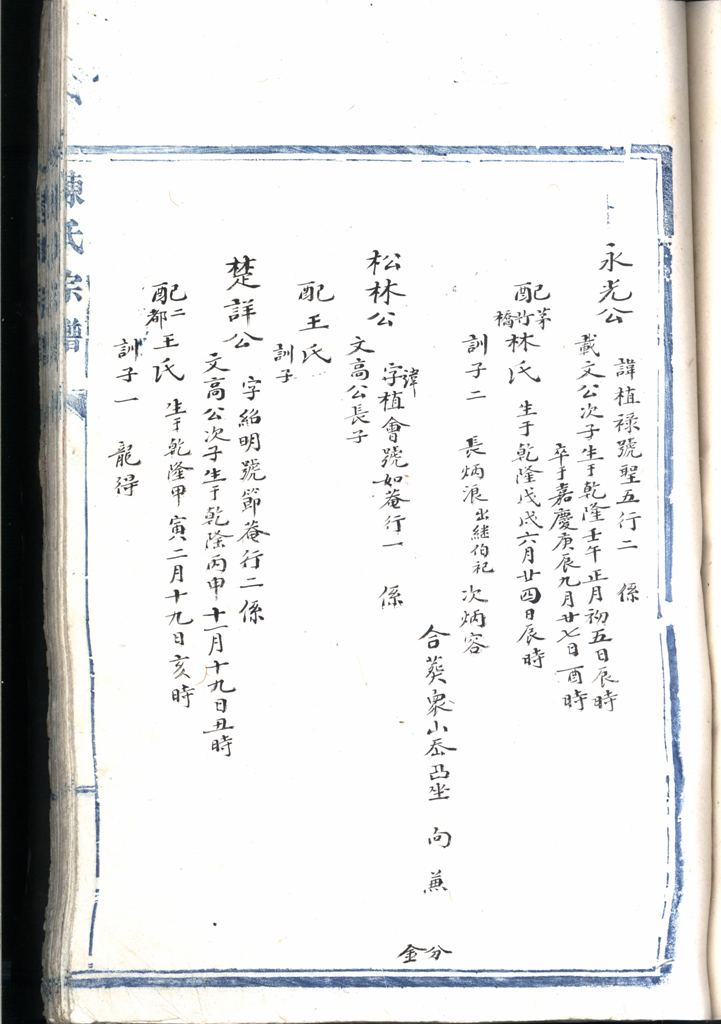 永光公
諱植祿號聖五行二 係
載文公次子生于乾隆壬午正月初五日辰時
卒于嘉慶庚辰九月廿七日酉時
配菜竹橋林氏 生于乾隆戊戌六月廿四日辰時
訓子二 長炳浪出継伯祀 次炳容
合葬衆山岙凸坐 向 兼
分金
松林公
諱
字植會號如菴行一 係
文高公長子
配王氏
訓子
楚詳公
字紹明號節菴行二係
文高公次子生于乾隆丙申十一月十九日丑時
配二都王氏 生于乾隆甲寅二月十九日亥時
訓子一 龍得
陳氏宗譜